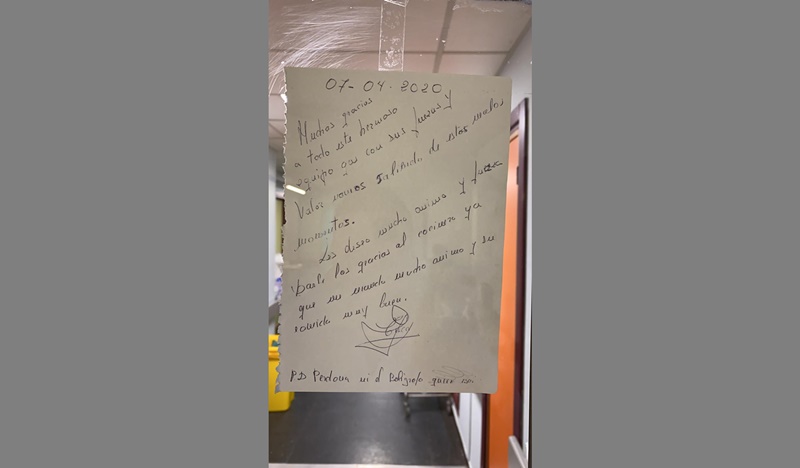 07-04-2020
Muchas gracias
a todo este hermoso
equipo que con sus fuerzas y
Valor vamos saliendo de estos malos
momentos.
Les deseo mucho animo y fuerza
Darle las gracias al cocinero ya
que me manda mucho animo y su
comida muy buena.
PD Perdona mi